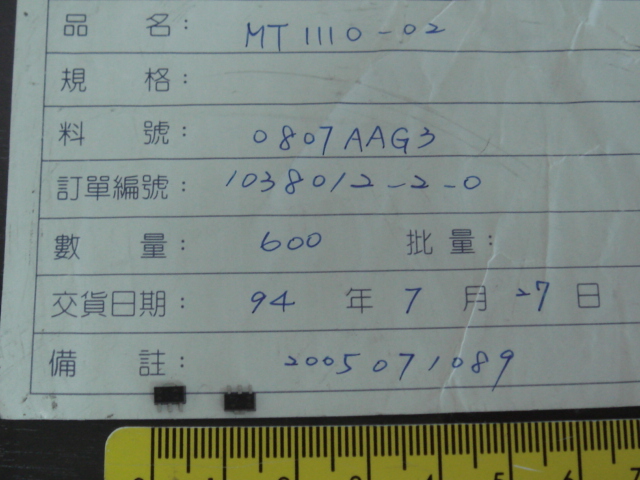 品 名: MT1110-02
規 格:
料 號: 0807AAG3
訂單編號: 1038012-2-0
數 量: 600 批 量:
交貨日期: 94 年 7 月 27 日
備 註: 2005071089
0 1 2 3 4 5 6 7